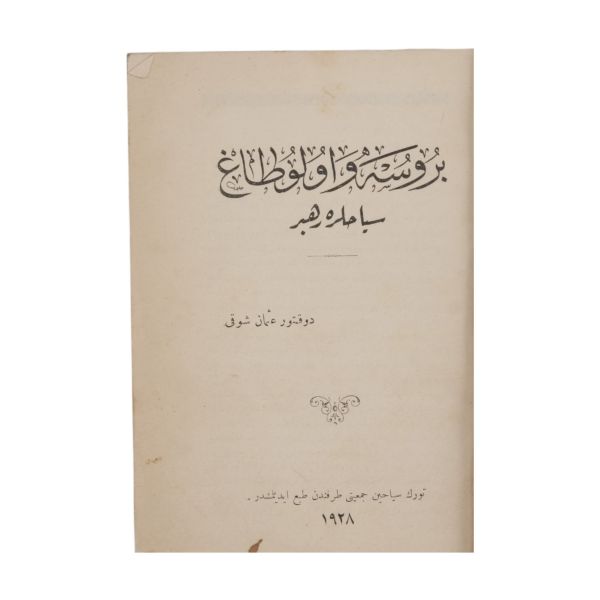 بروسه و اولوطاغ
سیاحلره رهبر
دوقتور عثمان شوقی
تورك سیاحین جمعیتی طرفندن طبع ایدیلمشدر .
١٩٢٨